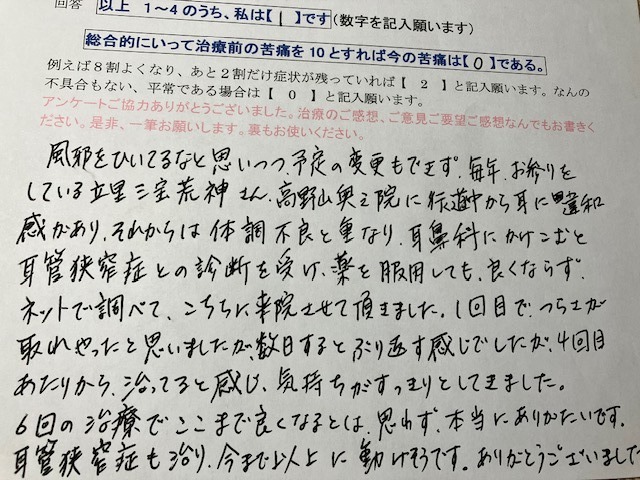 回答 以上 1〜4のうち、私は【 1 】です(数字を記入願います)
総合的にいって治療前の苦痛を10とすれば今の苦痛は【 0 】である。
例えば8割よくなり、あと2割だけ症状が残っていれば【 2 】と記入願います。なんの
不具合もない、平常である場合は【 0 】と記入願います。
アンケートご協力ありがとうございました。治療のご感想、ご意見ご要望ご感想なんでもお書きく
ださい。是非、一筆お願いします。裏もお使いください。
風邪をひいてるなと思いつつ、予定の変更もできず、毎年、お参りを
している立里三宝荒神さん、高野山奥之院に行道中から耳に違和
感があり、それからは体調不良と重なり、耳鼻科にかけこむと
耳管狭窄症との診断を受け、薬を服用しても、良くならず、
ネットで調べて、こちらに来院させて頂きました。1回目で、つらさが
取れやったと思いましたが、数日するとぶり返す感じでしたが、4回目
あたりから、治ってると感じ、気持ちがすっきりとしてきました。
6回の治療でここまで良くなるとは、思わず、本当にありがたいです。
耳管狭窄症も治り、今まで以上に動けそうです。ありがとうございました